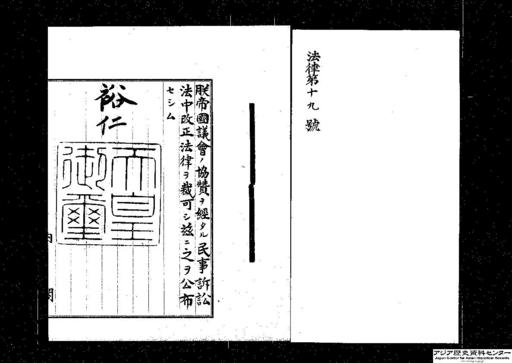 法律第十九號
朕帝國議會ノ協贊ヲ經タル民事訴訟
法中改正法律ヲ裁可シ茲ニ之ヲ公布
セシム
裕仁
天皇
御璽
内閣
アジア歴史資料センター
Japan Center for Asian Historical Records